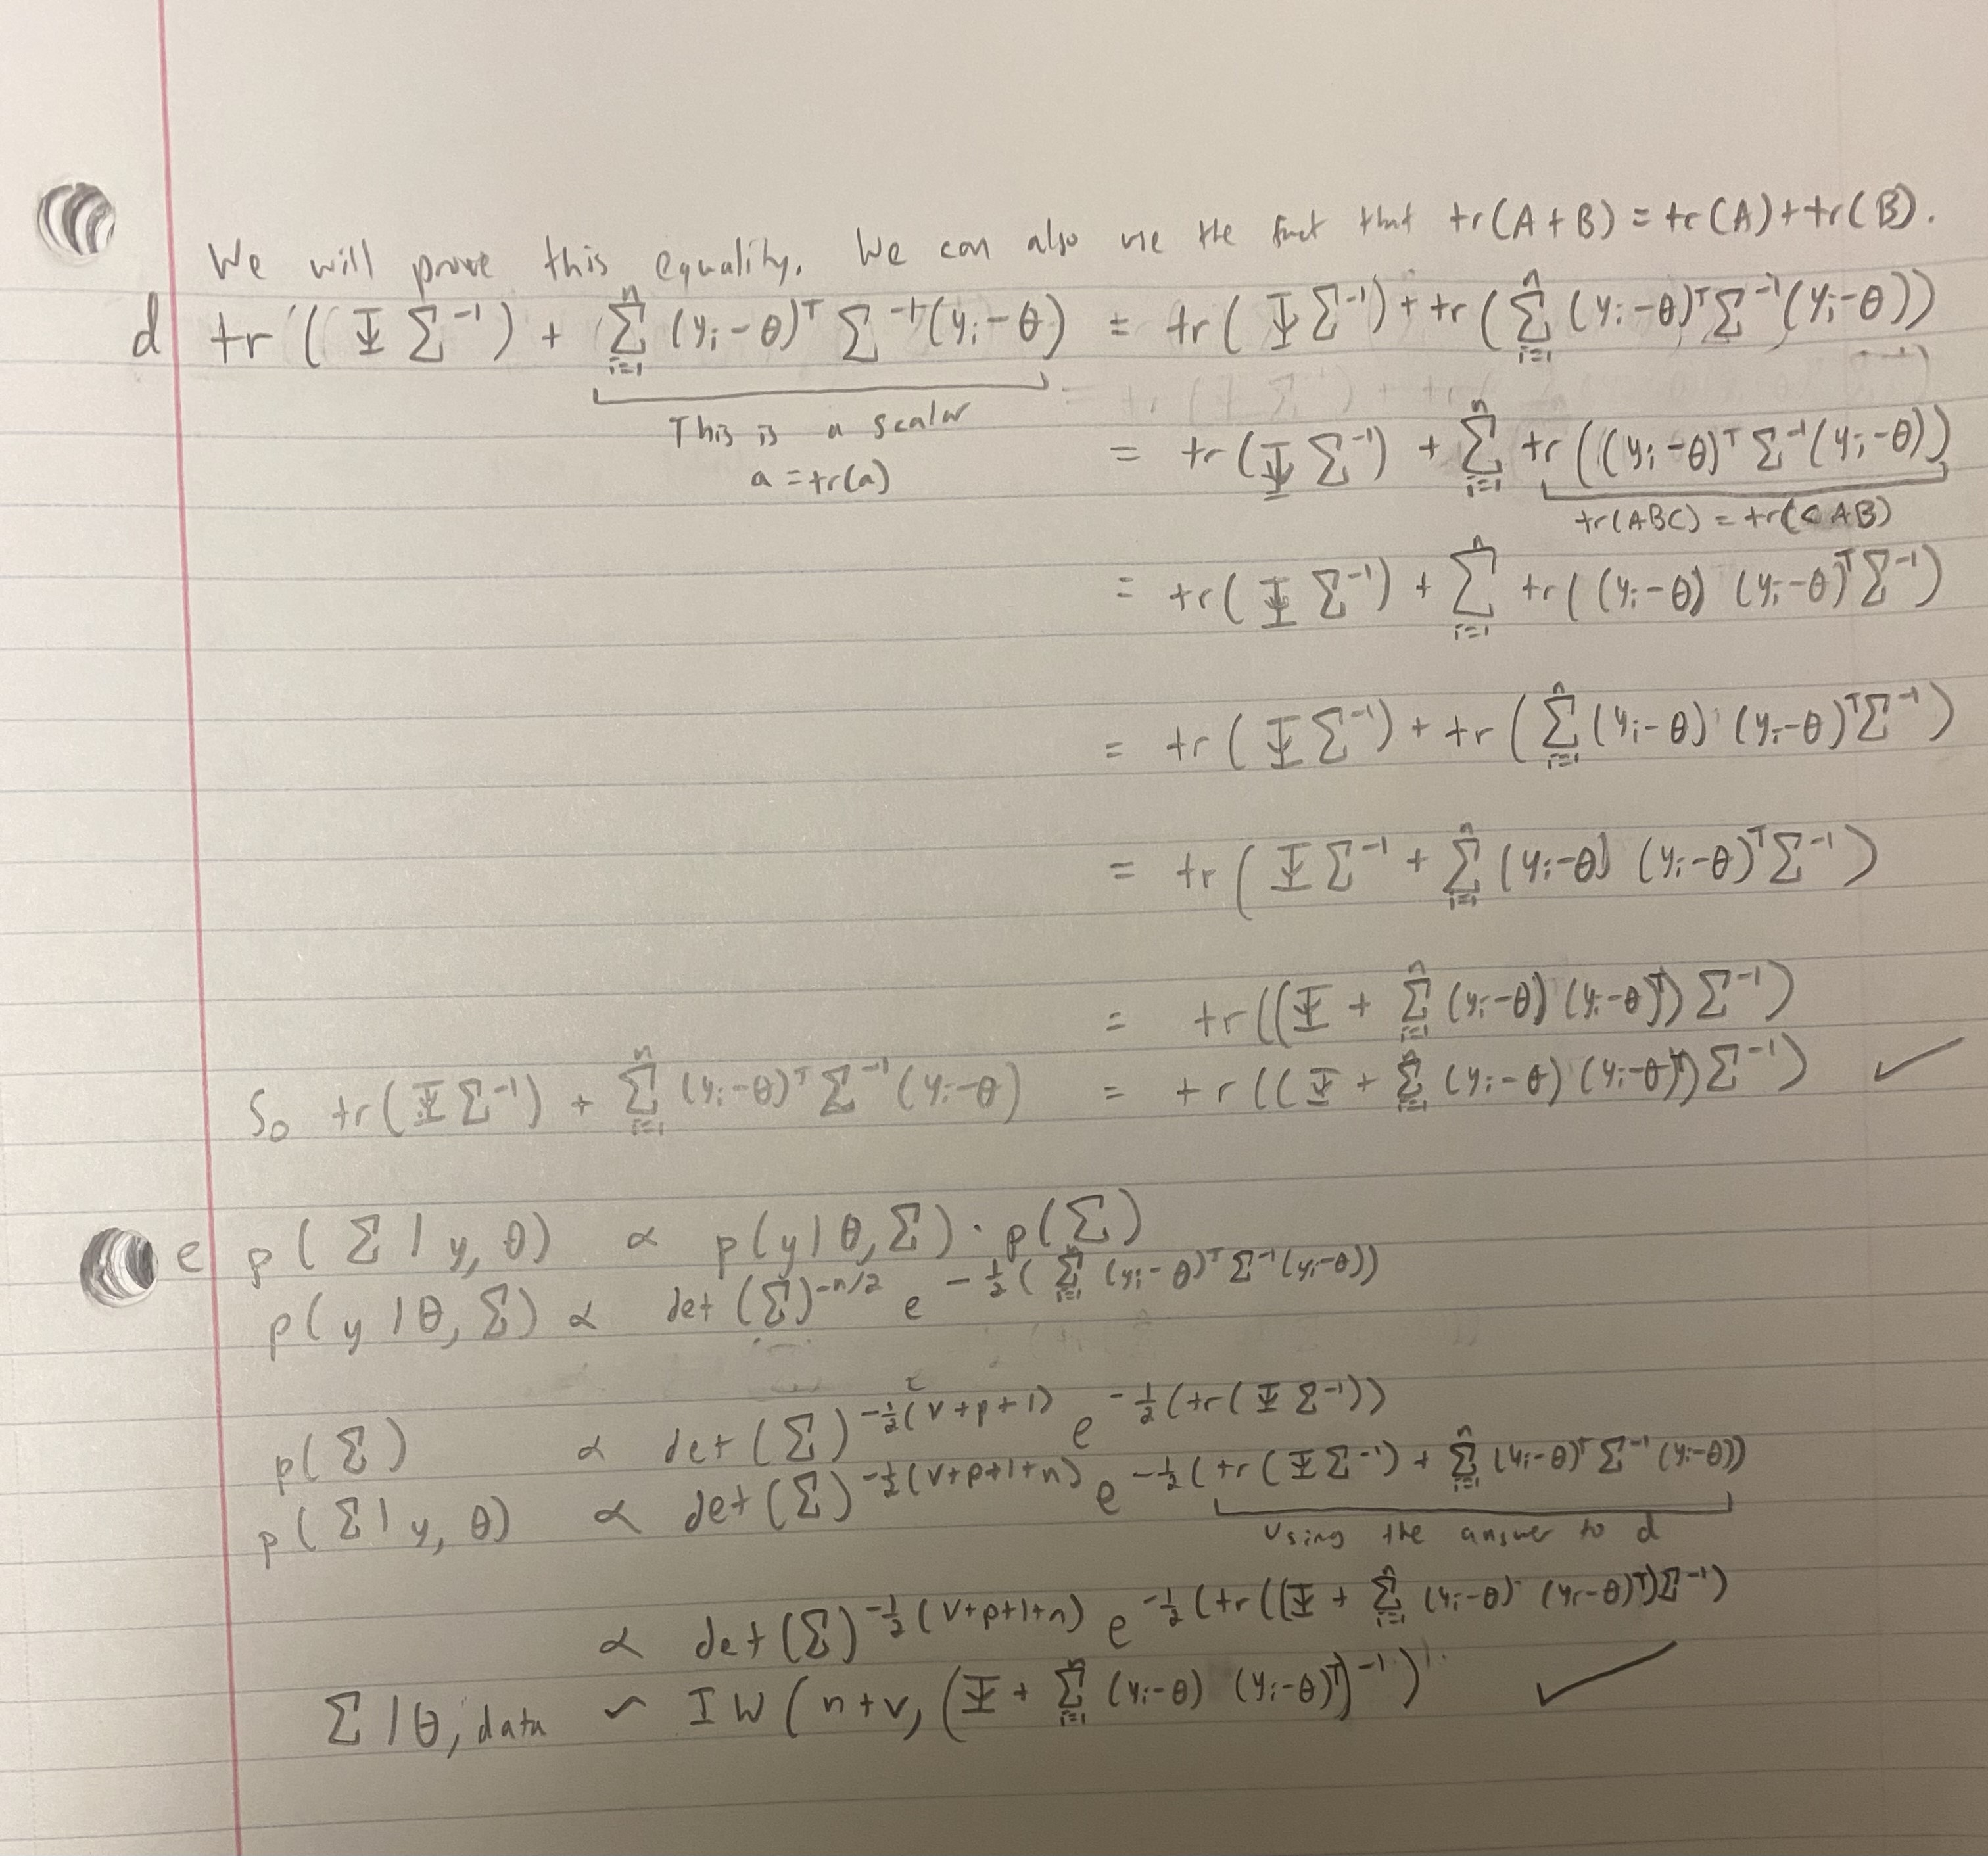 We will prove this equality. We can also use the fact that tr(A+B) = tr(A)++r(B).
d tr(ΨΣ⁻¹) + Σⁿᵢ₌₁ (yᵢ-θ)ᵀ Σ⁻¹(yᵢ-θ) = tr(ΨΣ⁻¹) + tr(Σⁿᵢ₌₁ (yᵢ-θ)ᵀΣ⁻¹(yᵢ-θ))
This is a scalar
a = tr(a)
= tr(ΨΣ⁻¹) + Σⁿᵢ₌₁ tr((yᵢ-θ)ᵀ Σ⁻¹(yᵢ-θ))
tr(ABC) = tr(CAB)
= tr(ΨΣ⁻¹) + Σⁿᵢ₌₁ tr((yᵢ-θ) (yᵢ-θ)ᵀΣ⁻¹)
= tr(ΨΣ⁻¹) + tr(Σⁿᵢ₌₁ (yᵢ-θ) (yᵢ-θ)ᵀΣ⁻¹)
= tr(ΨΣ⁻¹ + Σⁿᵢ₌₁ (yᵢ-θ) (yᵢ-θ)ᵀΣ⁻¹)
= tr((Ψ + Σⁿᵢ₌₁ (yᵢ-θ) (yᵢ-θ)ᵀ) Σ⁻¹)
So tr(ΨΣ⁻¹) + Σⁿᵢ₌₁ (yᵢ-θ)ᵀ Σ⁻¹ (yᵢ-θ) = tr((Ψ + Σⁿᵢ₌₁ (yᵢ-θ) (yᵢ-θ)ᵀ)Σ⁻¹) ✓
e p(Σ | y, θ) ∝ p(y | θ, Σ) · p(Σ)
p(y | θ, Σ) ∝ det(Σ)^(-n/2) e^(-½(Σⁿᵢ₌₁ (yᵢ-θ)ᵀ Σ⁻¹(yᵢ-θ)))
p(Σ) ∝ det(Σ)^(-½(v+p+1)) e^(-½(tr(ΨΣ⁻¹)))
p(Σ | y, θ) ∝ det(Σ)^(-½(v+p+1+n)) e^(-½(tr(ΨΣ⁻¹) + Σⁿᵢ₌₁ (yᵢ-θ)ᵀ Σ⁻¹ (yᵢ-θ)))
using the answer to d
∝ det(Σ)^(-½(v+p+1+n)) e^(-½(tr((Ψ + Σⁿᵢ₌₁ (yᵢ-θ) (yᵢ-θ)ᵀ)Σ⁻¹)
Σ | θ, data ~ IW(n+v, (Ψ + Σⁿᵢ₌₁ (yᵢ-θ) (yᵢ-θ)ᵀ)⁻¹) ✓